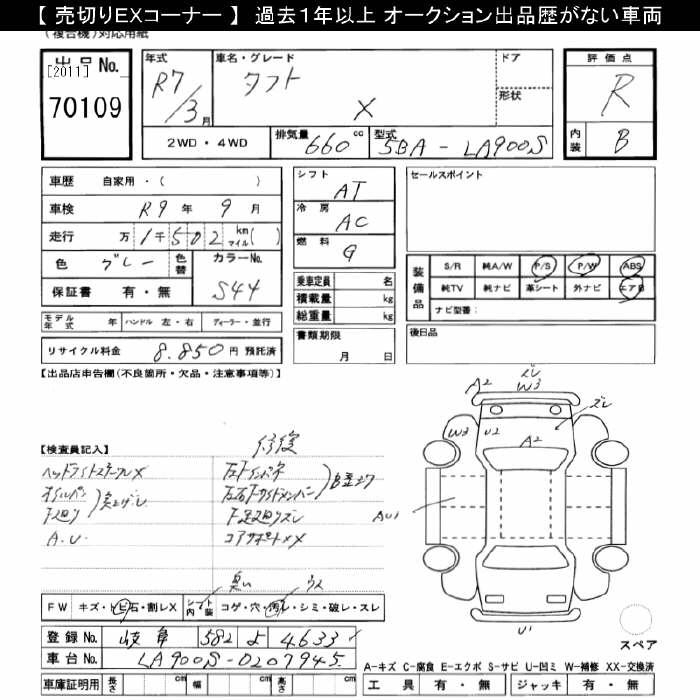 【 売切りEXコーナー 】 過去1年以上 オークション出品歴がない車両
(複合機)対応用紙
出品No.
[2011]
70109
年式
R7/3月
車名・グレード
タフト
X
ドア
形状
評価点
R
内装
B
2WD・4WD
排気量
660 cc
型式
5BA-LA900S
車歴 自家用・( )
車検 R9年 9月
走行 万 1千502 km マイル( )
色 グレー 色替 カラーNo.
保証書 有・無 S44
モデル年式 年 ハンドル 左・右 ディーラー・並行
リサイクル料金 8.850円 預託済
シフト AT
冷房 AC
燃料 G
乗車定員 名
積載量 kg
総重量 kg
書類期限
月 日
セールスポイント
装備品
S/R 純A/W P/S P/W ABS
純TV 純ナビ 革シート 外ナビ エアB
ナビ型番:
後日品
【出品店申告欄(不良個所・欠品・注意事項等)】
【検査員記入】
修復
ヘッドライトステーフレX
オイルパン
下廻り
A.U.
左Fインパネ
F足廻りズレ
コアサポートXX
臭い
FW キズ・トビ石・割レX シフト 内装 コゲ・穴・汚レ・シミ・破レ・スレ
登録No. 岐阜 582 よ 4633
車台No. LA900S-0207945
車庫証明用 長さ cm 幅 cm 高さ cm
ズレ
A2
W3
ズレ
W3
U2
A2
AU1
U1
スペア
A-キズ C-腐食 E-エクボ S-サビ U-凹ミ W-補修 XX-交換済
工具 有・無 ジャッキ 有・無